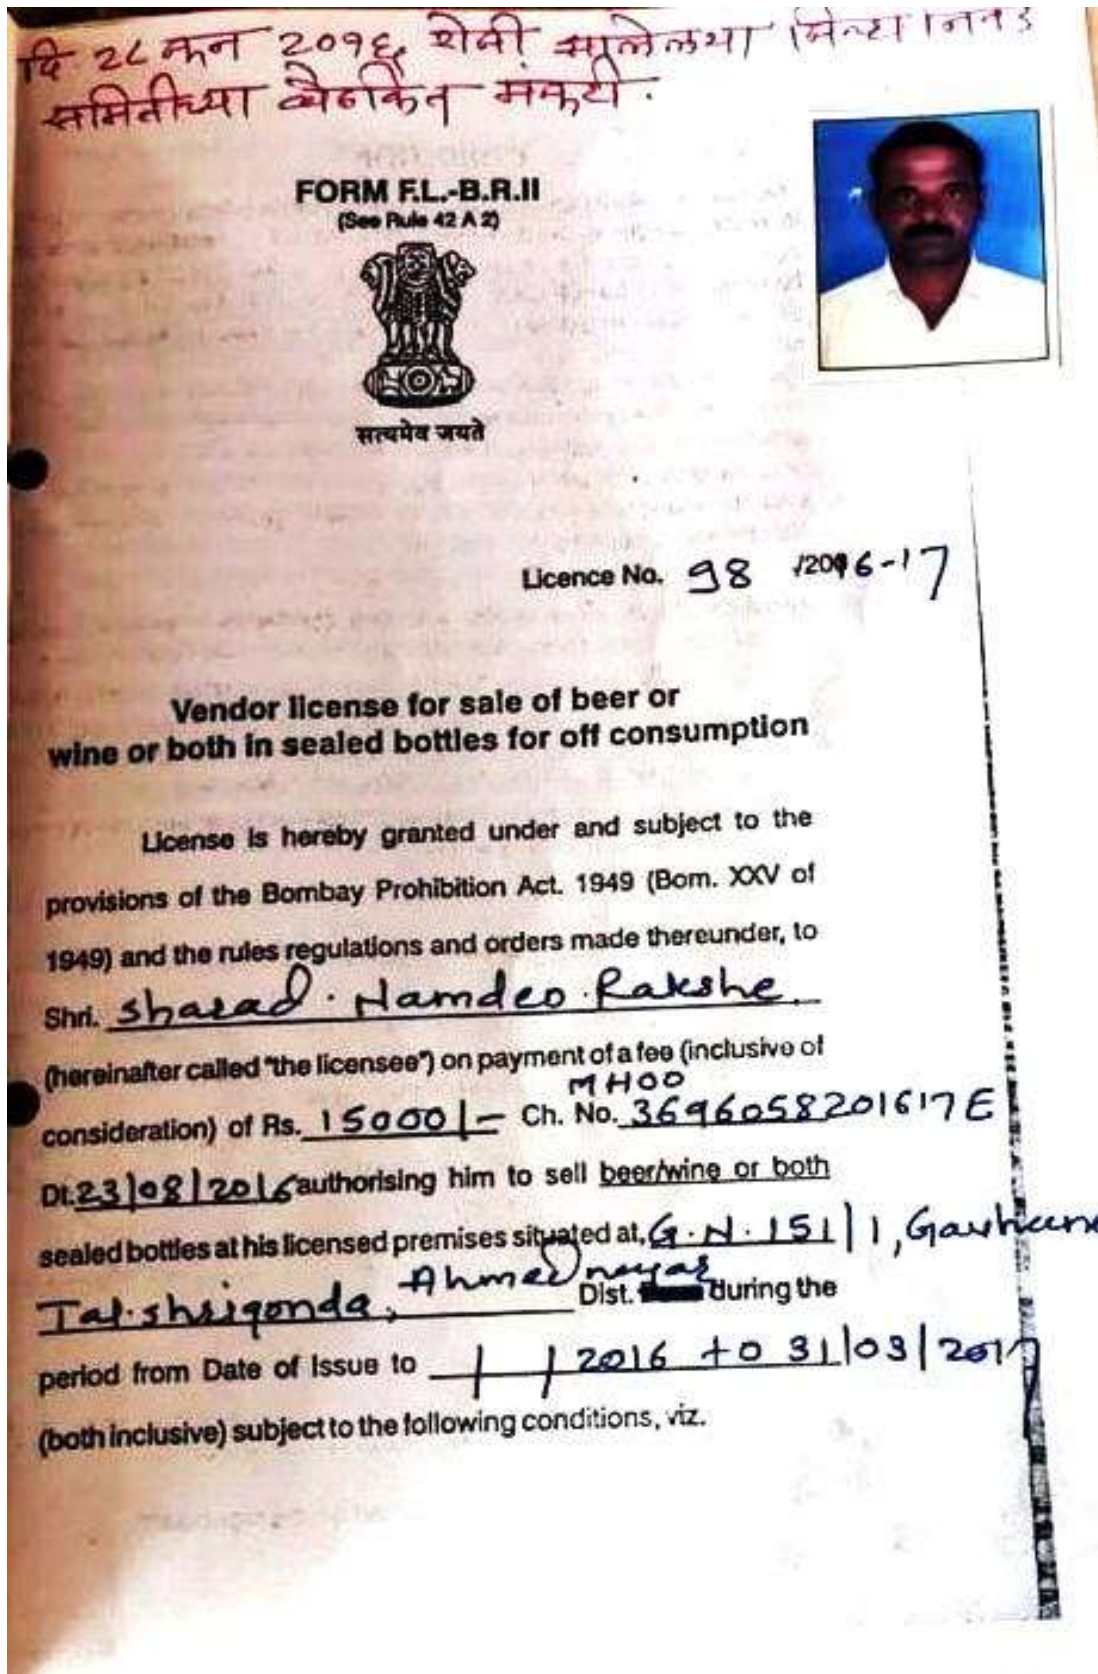 दि २८ जून २०१६ रोजी झालेल्या जिल्हा निवड
समितीच्या बैठकित मंजुरी.
FORM F.L.-B.R.II
(See Rule 42 A 2)
सत्यमेव जयते
Licence No. 98 /2016-17
Vendor license for sale of beer or
wine or both in sealed bottles for off consumption
License is hereby granted under and subject to the
provisions of the Bombay Prohibition Act. 1949 (Bom. XXV of
1949) and the rules regulations and orders made thereunder, to
Shri. Sharad. Namdeo. Rakshe.
(hereinafter called "the licensee") on payment of a fee (inclusive of
MH00
consideration) of Rs. 15000/- Ch. No. 3696058201617E
Dt. 23/08/2016 authorising him to sell beer/wine or both
sealed bottles at his licensed premises situated at, G.N. 151/1,
Tal. shrigonda, Ahmednagar Dist. during the
period from Date of Issue to / / 2016 to 31/03/2017
(both inclusive) subject to the following conditions, viz.